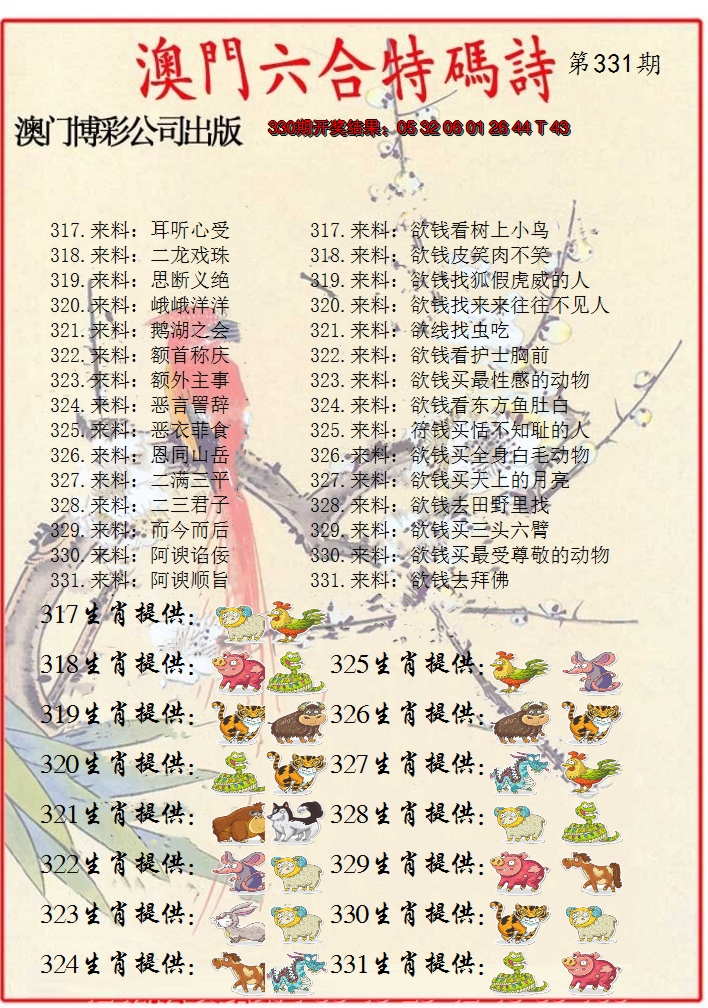 澳門六合特碼詩 第331期
澳门博彩公司出版 330期开奖结果：05 32 06 01 26 44 T 43
317.来料：耳听心受 317.来料：欲钱看树上小鸟
318.来料：二龙戏珠 318.来料：欲钱皮笑肉不笑
319.来料：思断义绝 319.来料：欲钱找狐假虎威的人
320.来料：峨峨洋洋 320.来料：欲钱找来来往往不见人
321.来料：鹅湖之会 321.来料：欲线找虫吃
322.来料：额首称庆 322.来料：欲钱看护士胸前
323.来料：额外主事 323.来料：欲钱买最性感的动物
324.来料：恶言詈辞 324.来料：欲钱看东方鱼肚白
325.来料：恶衣菲食 325.来料：符钱买恬不知耻的人
326.来料：恩同山岳 326.来料：欲钱买全身白毛动物
327.来料：二满三平 327.来料：欲钱买天上的月亮
328.来料：二三君子 328.来料：欲钱去田野里找
329.来料：而今而后 329.来料：欲钱买三头六臂
330.来料：阿谀谄佞 330.来料：欲钱买最受尊敬的动物
331.来料：阿谀顺旨 331.来料：欲钱去拜佛
317生肖提供：
318生肖提供： 325生肖提供：
319生肖提供： 326生肖提供：
320生肖提供： 327生肖提供：
321生肖提供： 328生肖提供：
322生肖提供： 329生肖提供：
323生肖提供： 330生肖提供：
324生肖提供： 331生肖提供：